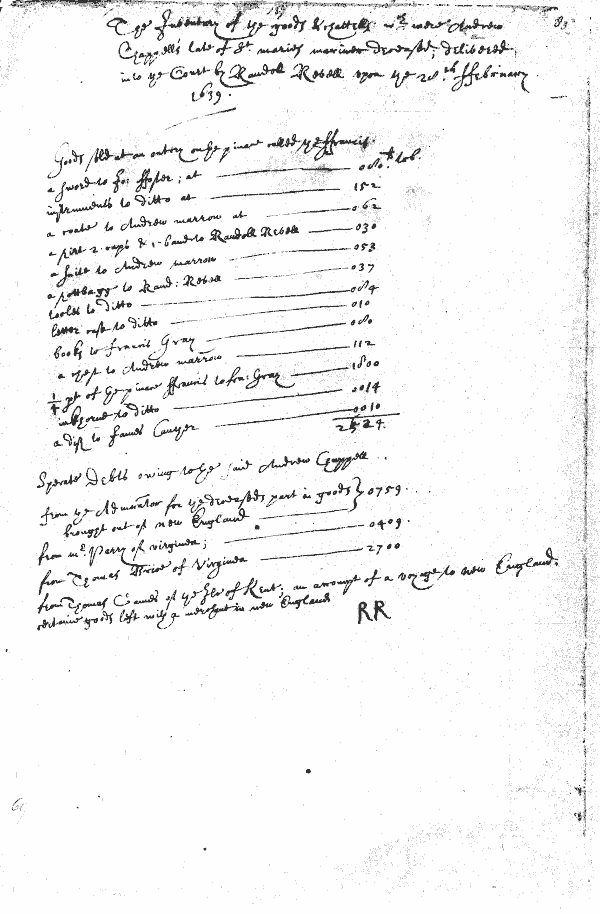 189
83
The Inventory of the goods & chattells wch were Andrew
Chappells late of St maries mariner deceased, delivered
into the Court by Randoll Revell upon the 28th ffebruary
1639.
Goods sold at an outcry on the pinace called the ffrancis
a sword to ffoster; at 080 lb tob.
instruments to ditto at 152
a coate to Andrew marrow at 062
2. caps & 1. band to Randoll Revell 030
a suite to Andrew marrow 053
a to Rand: Revell 037
tooles to ditto 084
letter case to ditto 010
books to francis Gray 080
a chest to Andrew marrow 112
1/4 pt of the pinace ffrancis to fra: Gray 1800
to ditto 0014
a dish to James Cauger 0010
2524
Sperate Debts owing to the said Andrew Chappell
from the Admrator for the deceaseds part in goods } 0759.
brought out of new England
from mr. Parry of virginia; 0409.
from Thomas Brice of Virginia 2700
from Thomas of the Ile of Kent; an accompt of a voyage to new England.
certaine goods left with a merchant in new England
RR